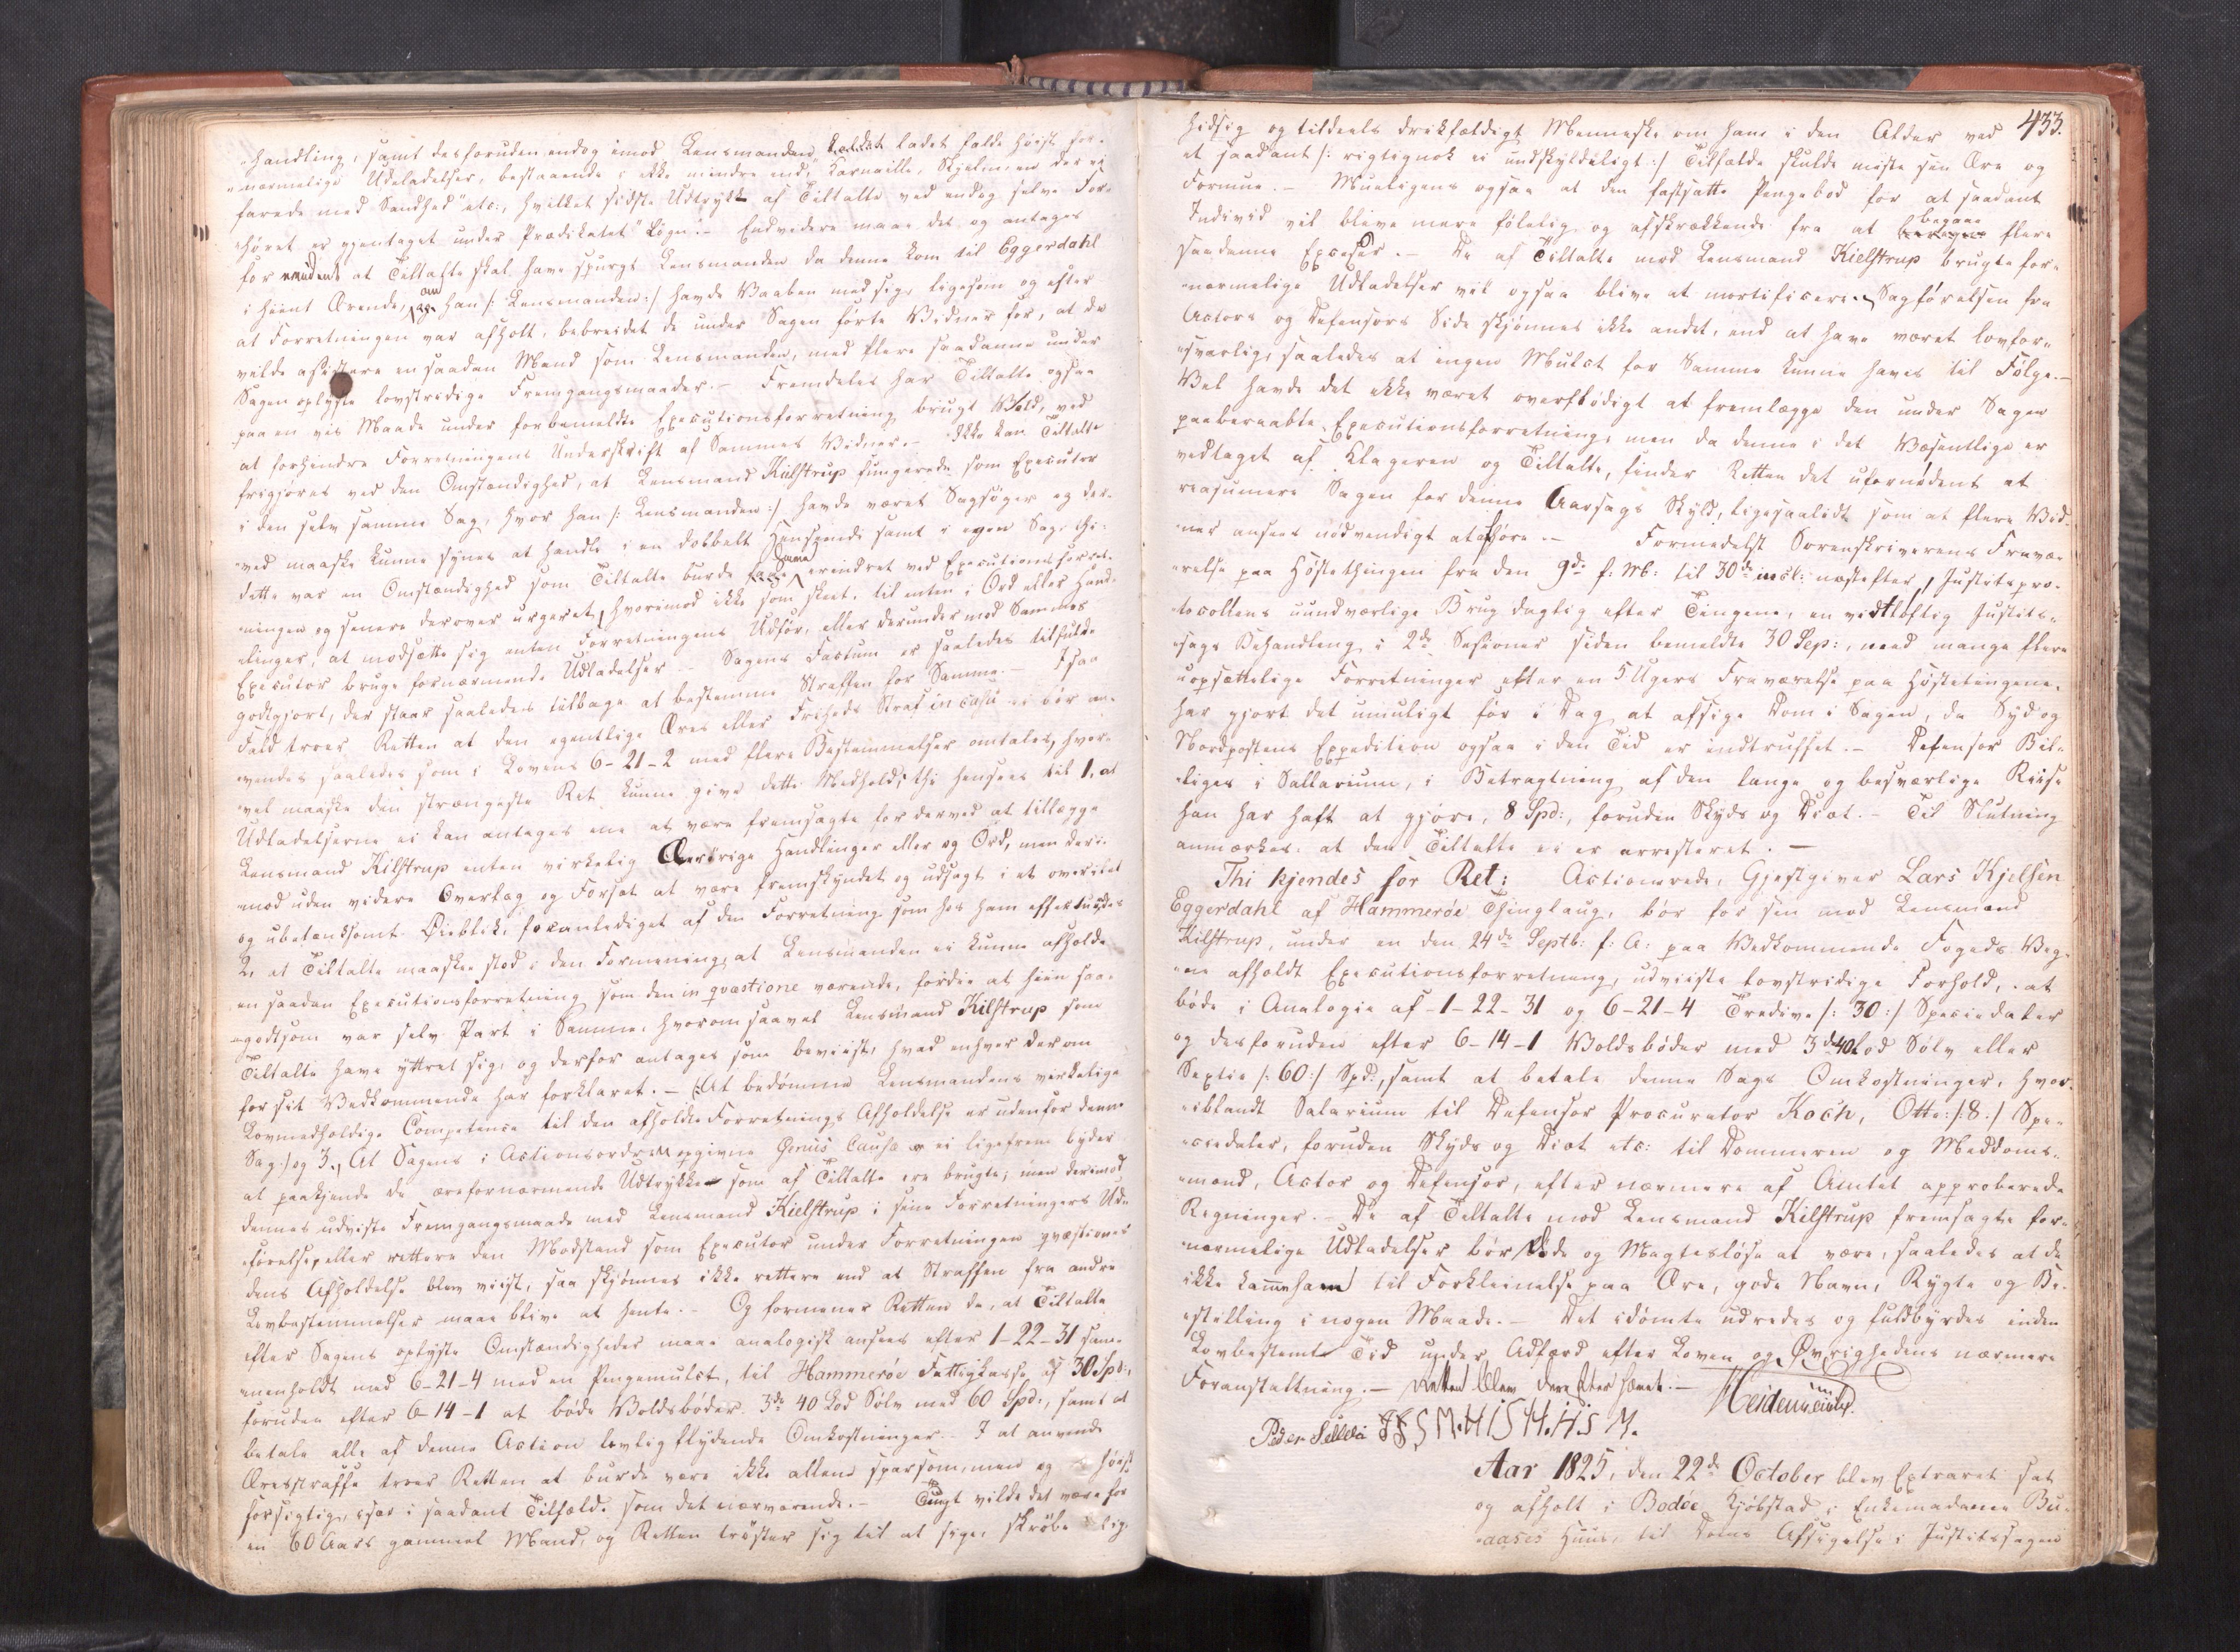 handling, samt desforuden endog imod Lensmanden ladet falde høist for-
nærmelige Udeladelser, bestaaende i ikke mindre end "Karnaille, Skjelm, en der ei
farede med Sandhed" etc:, hvilket sidste Udtryk af Tiltalte ved endog selve For-
høret er gjentaget under Prædikatet "Løgn".- Endvidere maae det og antages
for at Tiltalte skal have spurgt Lensmanden da denne kom til Eggerdahl
i hiint Ærende, om han /: Lensmanden :/ havde Vaaben med sig, ligesom og efter
at Forretningen var afholt, bebreidet de under Sagen førte Vidner for, at de
vilde assistere en saadan Mand som Lensmanden, med flere saadanne under
Sagen oplyste lovstridige Fremgangsmaader.- Fremdeles har Tiltalte ogsaa
paa en vis Maade under forbemeldte Executionsforretning brugt Vold, ved
at forhindre Forretningens Underskrift af Sammes Vidner.- Ikke kan Tiltalte
frigjøres ved den Omstændighed, at Lensmand Kielstrup fungerede som Executor
i den selv samme Sag, hvor han /: Lensmanden :/ havde været Sagsøger og der-
ved maaske kunne synes at handle i en dobbelt Henseende samt i egen Sag, thi
dette var en Omstændighed som Tiltalte burde have erindret ved Executionsforret-
ningen og senere derover urgeret, hvorimod ikke som skeet, til enten i Ord eller Hand-
linger, at modsætte sig enten Forretningens Udfør, eller derunder mod Sammes
Executor bruge fornærmende Udladelser.- Sagens Factum er saaledes tilfulde
godtgjort, der staar saaledes tilbage at bestemme Straffen for Samme.- I saa
Fald troer Retten at den egentlige Æres eller Friheds Straf in casu ei bør an-
vendes saaledes som i Lovens 6-21-2 med flere Bestemmelser omtales, hvor-
vel maaske den strængeste Ret kunne give dette Medhold; thi henseet til 1, at
Udladelserne ei kan antages ene at være fremsagte for derved at tillægge
Lensmand Kilstrup enten virkelig Ærerørige Handlinger eller og Ord, men deri-
mod uden videre Overlag og Forsæt at være fremskyndet og udsagt i et overilet
og ubetænksomt Øieblik, foranlediget af den Forretning som hos ham effectuerdes
2, at Tiltalte maaskee stod i den Formening, at Lensmanden ei kunne afholde
en saadan Executionsforretning som den in qvæstione værende, fordie at hiin saa-
godtsom var selv Part i Samme, hvorom saavel Lensmand Kilstrup som
Tiltalte have yttret sig, og derfor antages som beviist, hvad enhver derom
for sit Vedkommende har forklaret.- /: At bedømme Lensmandens virkelige
Lovmedholdige Competence til den afholdte Forretnings Afholdelse er udenfor denne
Sag :/ og 3., At Sagens i Actionsordren opgivne Genus Causa ei ligefrem byder
at paakjende de ærefornærmende Udtrykke som af Tiltalte ere brugte; men derimod
dennes udviste Fremgangsmaade mod Lensmand Kielstrup i sine Forretningers Ud-
førelse, eller rettere den Modstand som Executor under Forretningen qvæstiones
dens Afholdelse blev viist, saa skjønnes ikke rettere end at Straffen fra andre
Lovbestemmelser maae blive at hente.- Og formener Retten da, at Tiltalte
efter Sagens oplyste Omstændigheder maae analogisk ansees efter 1-22-31 sam-
menholdt med 6-21-4 med en Pengemulct, til Hammerøe Fattigkasse, af 30 Spd:,
foruden efter 6-14-1 at bøde Voldsbøder 3de 40 Lod Sølv med 60 Spd:, samt at
betale alle af denne Action lovlig flydende Omkostninger.- I at anvende
Æresstraffe troer Retten at burde være ikke allene sparsom, men og høist
forsigtig, især i saadant Tilfælde som det nærværende.- Tungt vilde det være for
en 60 Aars gammel Mand, og Retten trøster sig til at sige, skrøbelig
433.
hidsig og tildeels drikfældigt Menneske om hans i den Alder ved
et saadant /: rigtignok ei undskyldeligt :/ Tilfælde skulde miste sin Ære og
Formue.- Mueligens ogsaa at den fastsatte Pengebod for at saadant
Individ vil blive mere følelig og afskrækkende fra at begaae flere
saadanne Excesser.- De af Tiltalte mod Lensmand Kielstrup brugte for-
nærmelige Udladelser vil ogsaa blive at mortificere. Sagførelsen fra
Actors og Defensors Side skjønnes ikke andet, end at have været lovfor-
svarlig, saaledes at ingen Mulct for Samme kunne haves til Følge.-
Vel havde det ikke været overflødigt at fremlægge den under Sagen
paaberaabte Executionsforretning, men da denne i det Væsentlige er
vedtaget af Klageren og Tiltalte, finder Retten det ufornødent at
reasumere Sagen for denne Aarsags Skyld, ligesaalidt som at flere Vid-
ner ansees nødvendigt at afhøre.- Formedelst Sorenskriverens Fravæ-
relse paa Høstethingene fra den 9de f: M: til 30te incl: næstefter, Justitspro-
tocollens uundværlige Brug daglig efter Tingene, en vidtløftig Justits-
sags Behandling i 2de Sessioner siden bemeldte 30 Sep:, med mange flere
uopsættelige Forretninger efter en 5 Ugers Fraværelse paa Høstetingene,
har gjort det umuligt før i Dag at afsige Dom i Sagen, da Syd og
Nordpostens Expedition ogsaa i den Tid er indtruffet.- Defensor Bil-
liges i Sallarium, i Betragtning af den lange og besværlige Reise
han har haft at gjøre, 8 Spd:, foruden Skyds og Diæt.- Til Slutning
anmærkes: at den Tiltalte ei er arresteret.-
Thi kjendes for Ret: Actionerede, Gjestgiver Lars Kjelsen
Eggerdahl af Hammerøe Thinglaug, bør for sin mod Lensmand
Kilstrup, under en den 24de Septb: f: A: paa Vedkommende Fogeds Veg-
ne afholdt Executionsforretning, udviiste lovstridige Forhold, at
bøde i Analogie af 1-22-31 og 6-21-4 Tredive /: 30 :/ Speciedaler
og desforuden efter 6-14-1 Voldsbøder med 3de 40 Lod Sølv eller
Sextie /: 60 :/ Spd:, samt at betale denne Sags Omkostninger, hvor-
iblandt Salarium til Defensor Procurator Koch, Otte /: 8 :/ Spe-
ciedaler, foruden Skyds og Diæt etc: til Dommeren og Meddoms-
mænd, Actor og Defensor, efter nærmere af Amtet approberede
Regninger.- De af Tiltalte mod Lensmand Kilstrup fremsagte for-
nærmelige Udladelser bør døde og Magtesløse at være, saaledes at de
ikke komme ham til Forkleinelse paa Ære, gode Navn, Rygte og Be-
stilling i nogen Maade.- Det idømte udredes og fuldbyrdes inden
Lovbestemt Tid under Adfærd efter Loven og Øvrighedens nærmere
Foranstaltning.- Retten blev derefter hævet.- Heidenreich
Peder JFS M.HIS H.H.S M.
Aar 1825, den 22de October blev Extraret sat
og afholt i Bodøe Kjøbstad i Enkemadame Bu-
aases Huus, til Doms Afsigelse i Justitssagen